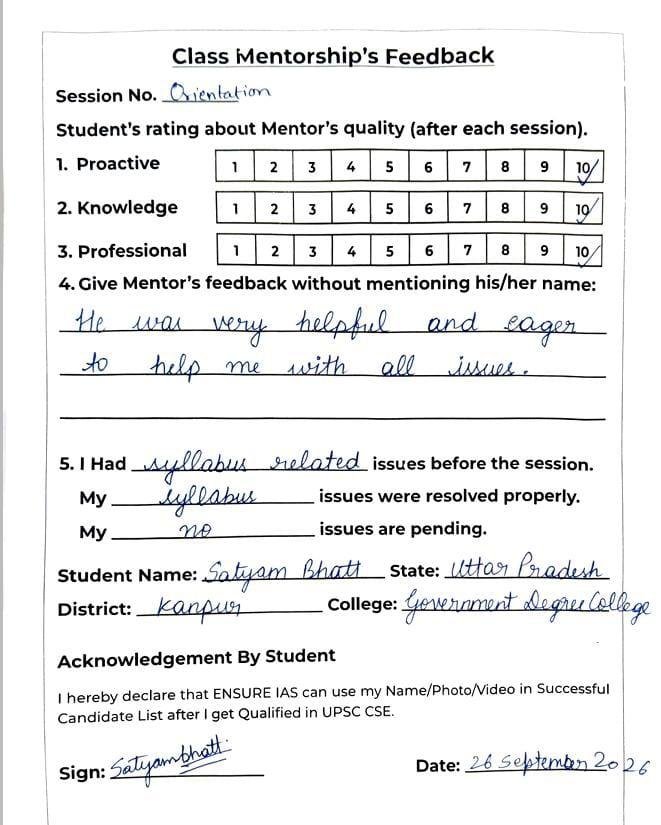 Class Mentorship's Feedback
Session No. Orientation
Student's rating about Mentor's quality (after each session).
1. Proactive 1 2 3 4 5 6 7 8 9 10
2. Knowledge 1 2 3 4 5 6 7 8 9 10
3. Professional 1 2 3 4 5 6 7 8 9 10
4. Give Mentor's feedback without mentioning his/her name:
He was very helpful and eager
to help me with all issues.
5. I Had syllabus related issues before the session.
My syllabus issues were resolved properly.
My no issues are pending.
Student Name: Satyam Bhatt State: Uttar Pradesh
District: Kanpur College: Government Degree College
Acknowledgement By Student
I hereby declare that ENSURE IAS can use my Name/Photo/Video in Successful
Candidate List after I get Qualified in UPSC CSE.
Sign: Satyambhatt Date: 26 September 2026